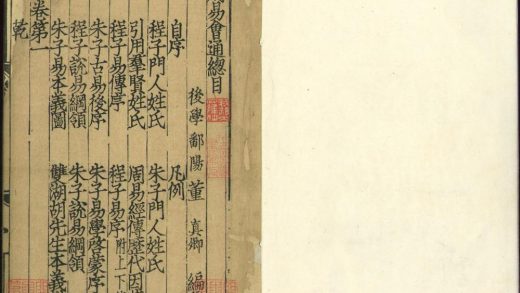 易會通總目
後學鄱陽董 真卿 編
自序 凡例
程子門人姓氏 朱子門人姓氏
引用羣賢姓氏 周易經傳歷代因
程子易傳序 程子易序 附上下
朱子古易後序 朱子易學啓蒙序
程子說易綱領 朱子說易綱領
朱子易本義圖 雙湖胡先生本義
卷第一
乾